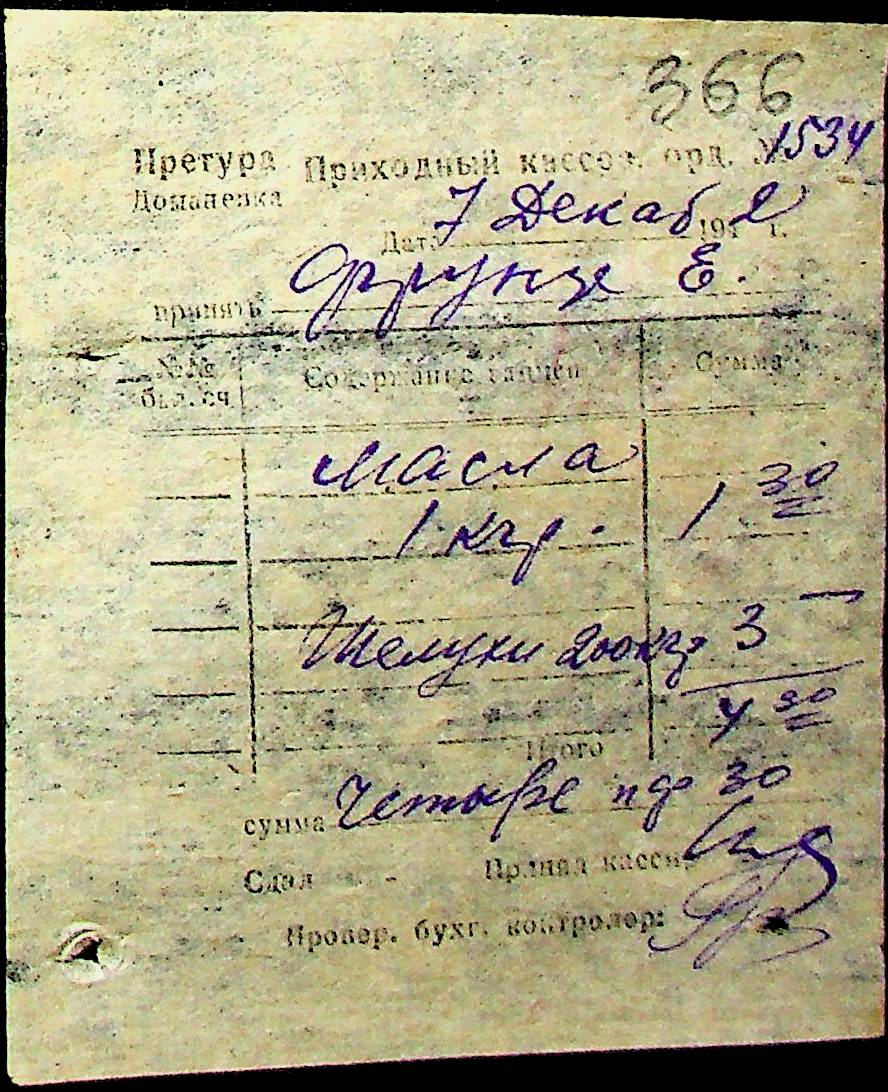 366
Претура Приходный кассов. орд. № 1534
Доманевка
Дата 7 Декаб 194 2 г.
принять Фрунзе Е.
№№ Содержание Сумма
бал. сч.
Масла
1 кгр. 1 30
Шелухи 200кгр 3 —
4 30
Итого
сумма Четыре пф 30
Сдал - Принял кассир
Провер. бухг. контролер: